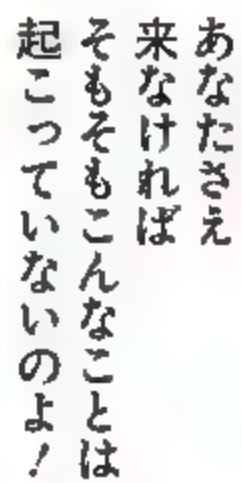 あなたさえ
来なければ
そもそもこんなことは
起こっていないのよ！